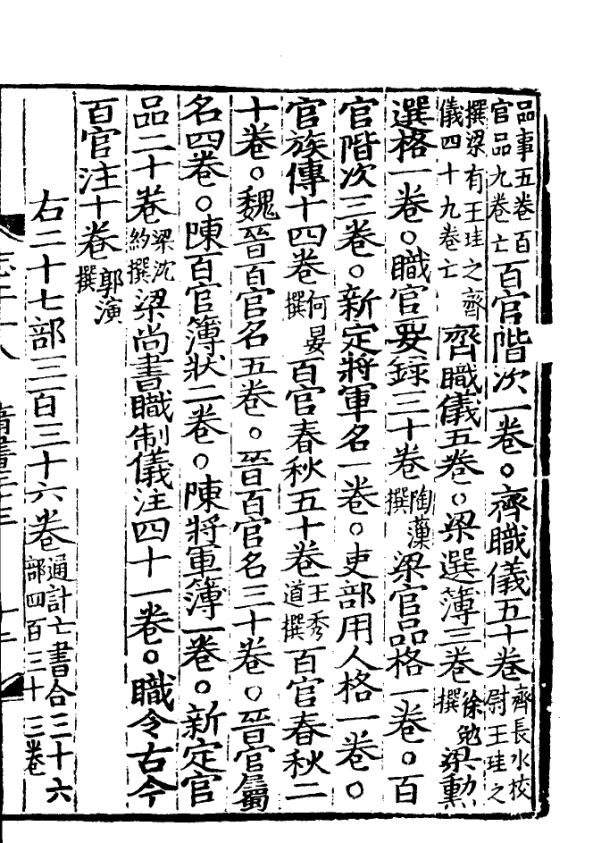 品事五卷百官品九卷亡百官階次一卷○齊職儀五十卷齊長水校尉王珪之
撰梁有王珪之齊儀四十九卷亡齊職儀五卷○梁選簿三卷徐勉撰梁勲
選格一卷○職官要錄三十卷陶藻撰梁官品格一卷○百
官階次三卷○新定將軍名一卷○吏部用人格一卷○
官族傳十四卷何晏撰百官春秋五十卷王秀道撰百官春秋二
十卷○魏晉百官名五卷○晉百官名三十卷○晉官屬
名四卷○陳百官簿狀二卷○陳將軍簿一卷○新定官
品二十卷梁沈約撰梁尚書職制儀注四十一卷○職令古今
百官注十卷郭演撰
右二十七部三百三十六卷通計亡書合三十六部四百三十三卷